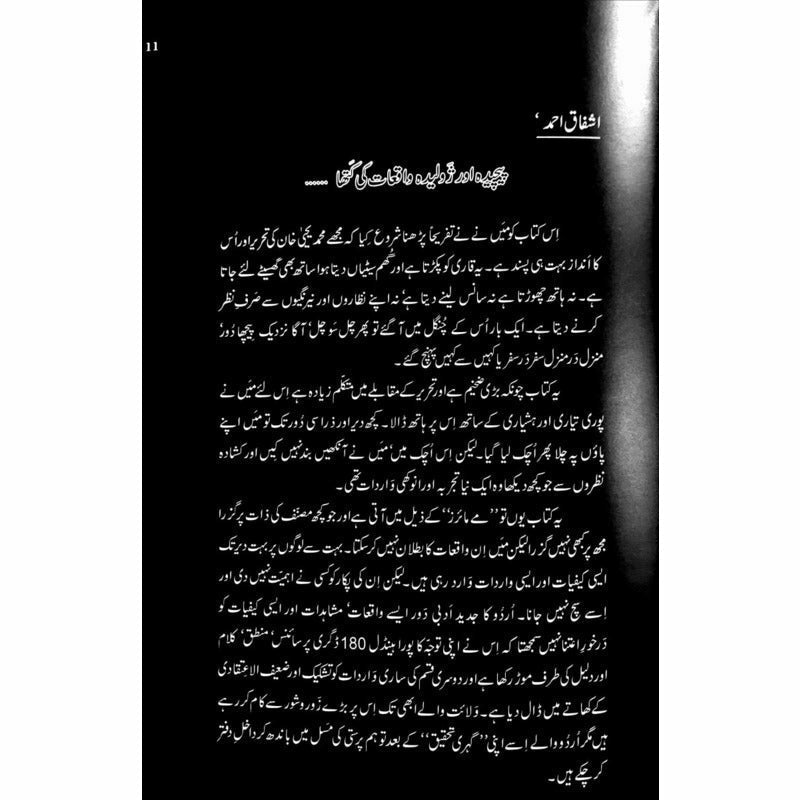 11
اشفاق احمد ‘
پیچیدہ اور ژولیدہ واقعات کی کتھا ......
اِس کتاب کو میَں نے نے تفریحاً پڑھنا شروع کِیا کہ مجھے محمد یحییٰ خان کی تحریر اور اُس
کا انداز بہت ہی پسند ہے۔ یہ قاری کو پکڑتا ہے اور گھم سیٹیاں دیتا ہوا ساتھ بھی گھسیٹے لئے جاتا
ہے۔ نہ ہاتھ چھوڑتا ہے نہ سانس لینے دیتا ہے‘ نہ اپنے نظاروں اور نیرنگیوں سے صَرفِ نظر
کرنے دیتا ہے۔ ایک بار اُس کے چُنگل میں آ گئے تو پھر چل سَو چل‘ آگا نزدیک پیچھا دُور‘
منزل دَر منزل سفر دَر سفر یا کہیں سے کہیں پہنچ گئے۔
یہ کتاب چونکہ بڑی ضخیم ہے اور تحریر کے مقابلے میں متکلّم زیادہ ہے اِس لئے میَں نے
پوری تیاری اور ہشیاری کے ساتھ اِس پر ہاتھ ڈالا۔ کچھ دیر اور ذرا سی دُور تک تو میَں اپنے
پاؤں پہ چلا پھر اُچک لیا گیا۔ لیکن اِس اُچک میں‘ میَں نے آنکھیں بند نہیں کیں اور کشادہ
نظروں سے جو کچھ دیکھا وہ ایک نیا تجربہ اور انوکھی وَاردات تھی۔
یہ کتاب یوں تو ’’مے مائرز‘‘ کے ذیل میں آتی ہے اور جو کچھ مصنّف کی ذات پر گزرا
مجھ پر کبھی نہیں گزرا لیکن میَں اِن واقعات کا بطلان نہیں کر سکتا۔ بہت سے لوگوں پر بہت دیر تک
ایسی کیفیات اور ایسی واردات وَارد رہی ہیں۔ لیکن اِن کی پکار کو کسی نے اہمیّت نہیں دی اور
اِسے سچ نہیں جانا۔ اُردُو کا جدید اَدبی دَور ایسے واقعات‘ مشاہدات اور ایسی کیفیات کو
دَرخورِ اعتنا نہیں سمجھتا کہ اِس نے اپنی توجّہ کا پورا ہینڈل 180 ڈگری پر سائنس‘ منطق‘ کلام
اور دلیل کی طرف موڑ رکھا ہے اور دوسری قسم کی ساری وَاردات کو تشکیک اور ضعیف الاِعتقادی
کے کھاتے میں ڈال دیا ہے۔ وَلائت والے ابھی تک اِس پر بڑے زَور و شور سے کام کر رہے
ہیں مگر اُردُو والے اِسے اپنی ’’گہری تحقیق‘‘ کے بعد توہم پرستی کی مَسل میں باندھ کر داخلِ دفتر
کر چکے ہیں۔